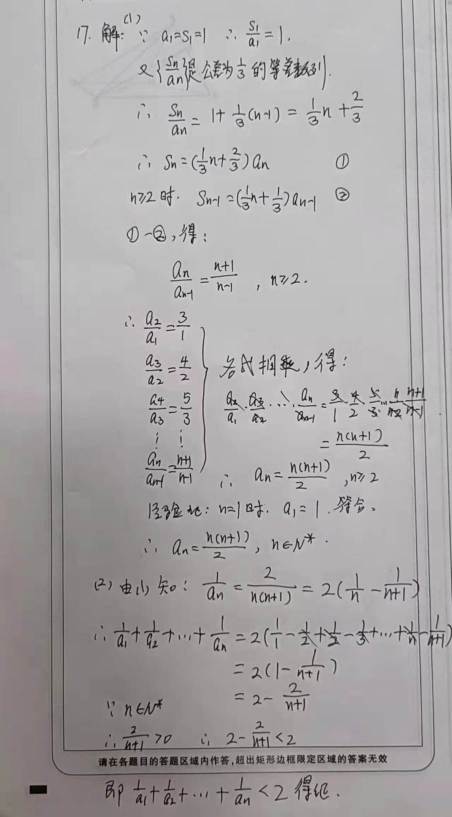 17. 解:(1) ∵ a₁=S₁=1 ∴ S₁/a₁=1.
又{Sn/an}是公差为1/3的等差数列.
∴ Sn/an = 1+1/3(n-1) = 1/3n+2/3
∴ Sn=(1/3n+2/3)an ①
n≥2时. Sn-1=(1/3n+1/3)an-1 ②
①-②,得:
an/an-1=n+1/n-1 , n≥2.
∴ a₂/a₁=3/1
a₃/a₂=4/2 各式相乘,得:
a₄/a₃=5/3 a₂/a₁·a₃/a₂·⋯·an/an-1=3/1·4/2·5/3⋯n/n-2·n+1/n-1
⋮ ⋮ =n(n+1)/2
an/an-1=n+1/n-1 ∴ an=n(n+1)/2 ,n≥2
经验证: n=1时. a₁=1. 符合.
∴ an=n(n+1)/2, n∈N*.
(2) 由(1)知: 1/an=2/n(n+1)=2(1/n-1/n+1)
∴ 1/a₁+1/a₂+⋯+1/an=2(1/1-1/2+1/2-1/3+⋯+1/n-1/n+1)
=2(1-1/n+1)
=2-2/n+1
∵ n∈N*
∴ 2/n+1>0 ∴ 2-2/n+1<2
请在各题目的答题区域内作答,超出矩形边框限定区域的答案无效
即 1/a₁+1/a₂+⋯+1/an<2 得证.